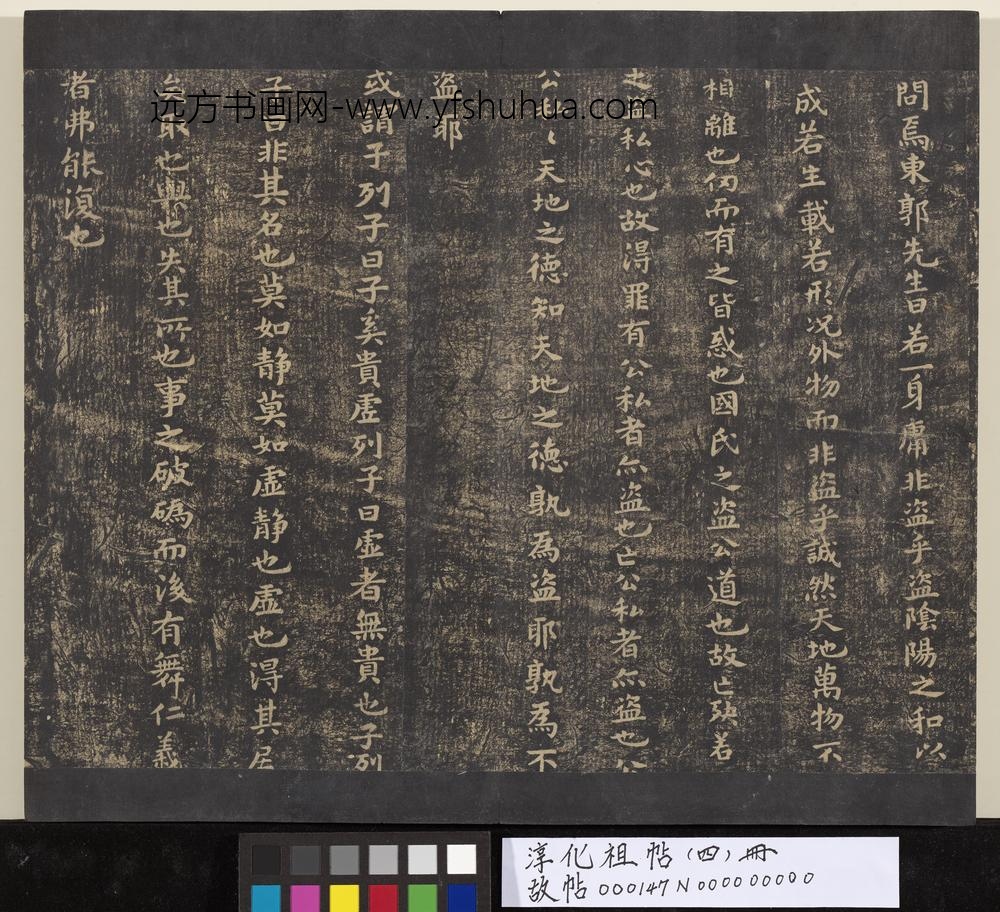 問焉東郭先生曰若一身庸非盜乎盜陰陽之和以
成若生載若形况外物而非盜乎誠然天地萬物不
相離也仞而有之皆惑也國氏之盜公道也故亡殃若
之私心也故得罪有公私者亦盜也亡公私者亦盜也公
公私〻天地之德知天地之德孰為盜耶孰為不
盜耶
或謂子列子曰子奚貴虛列子曰虛者無貴也子列
子曰非其名也莫如静莫如虛静也虛也得其居
矣取也與也失其所也事之破䃣而後有舞仁義
者弗能復也
远方书画网-www.yfshuhua.com
淳化祖帖(四)冊
故帖000147N000000000